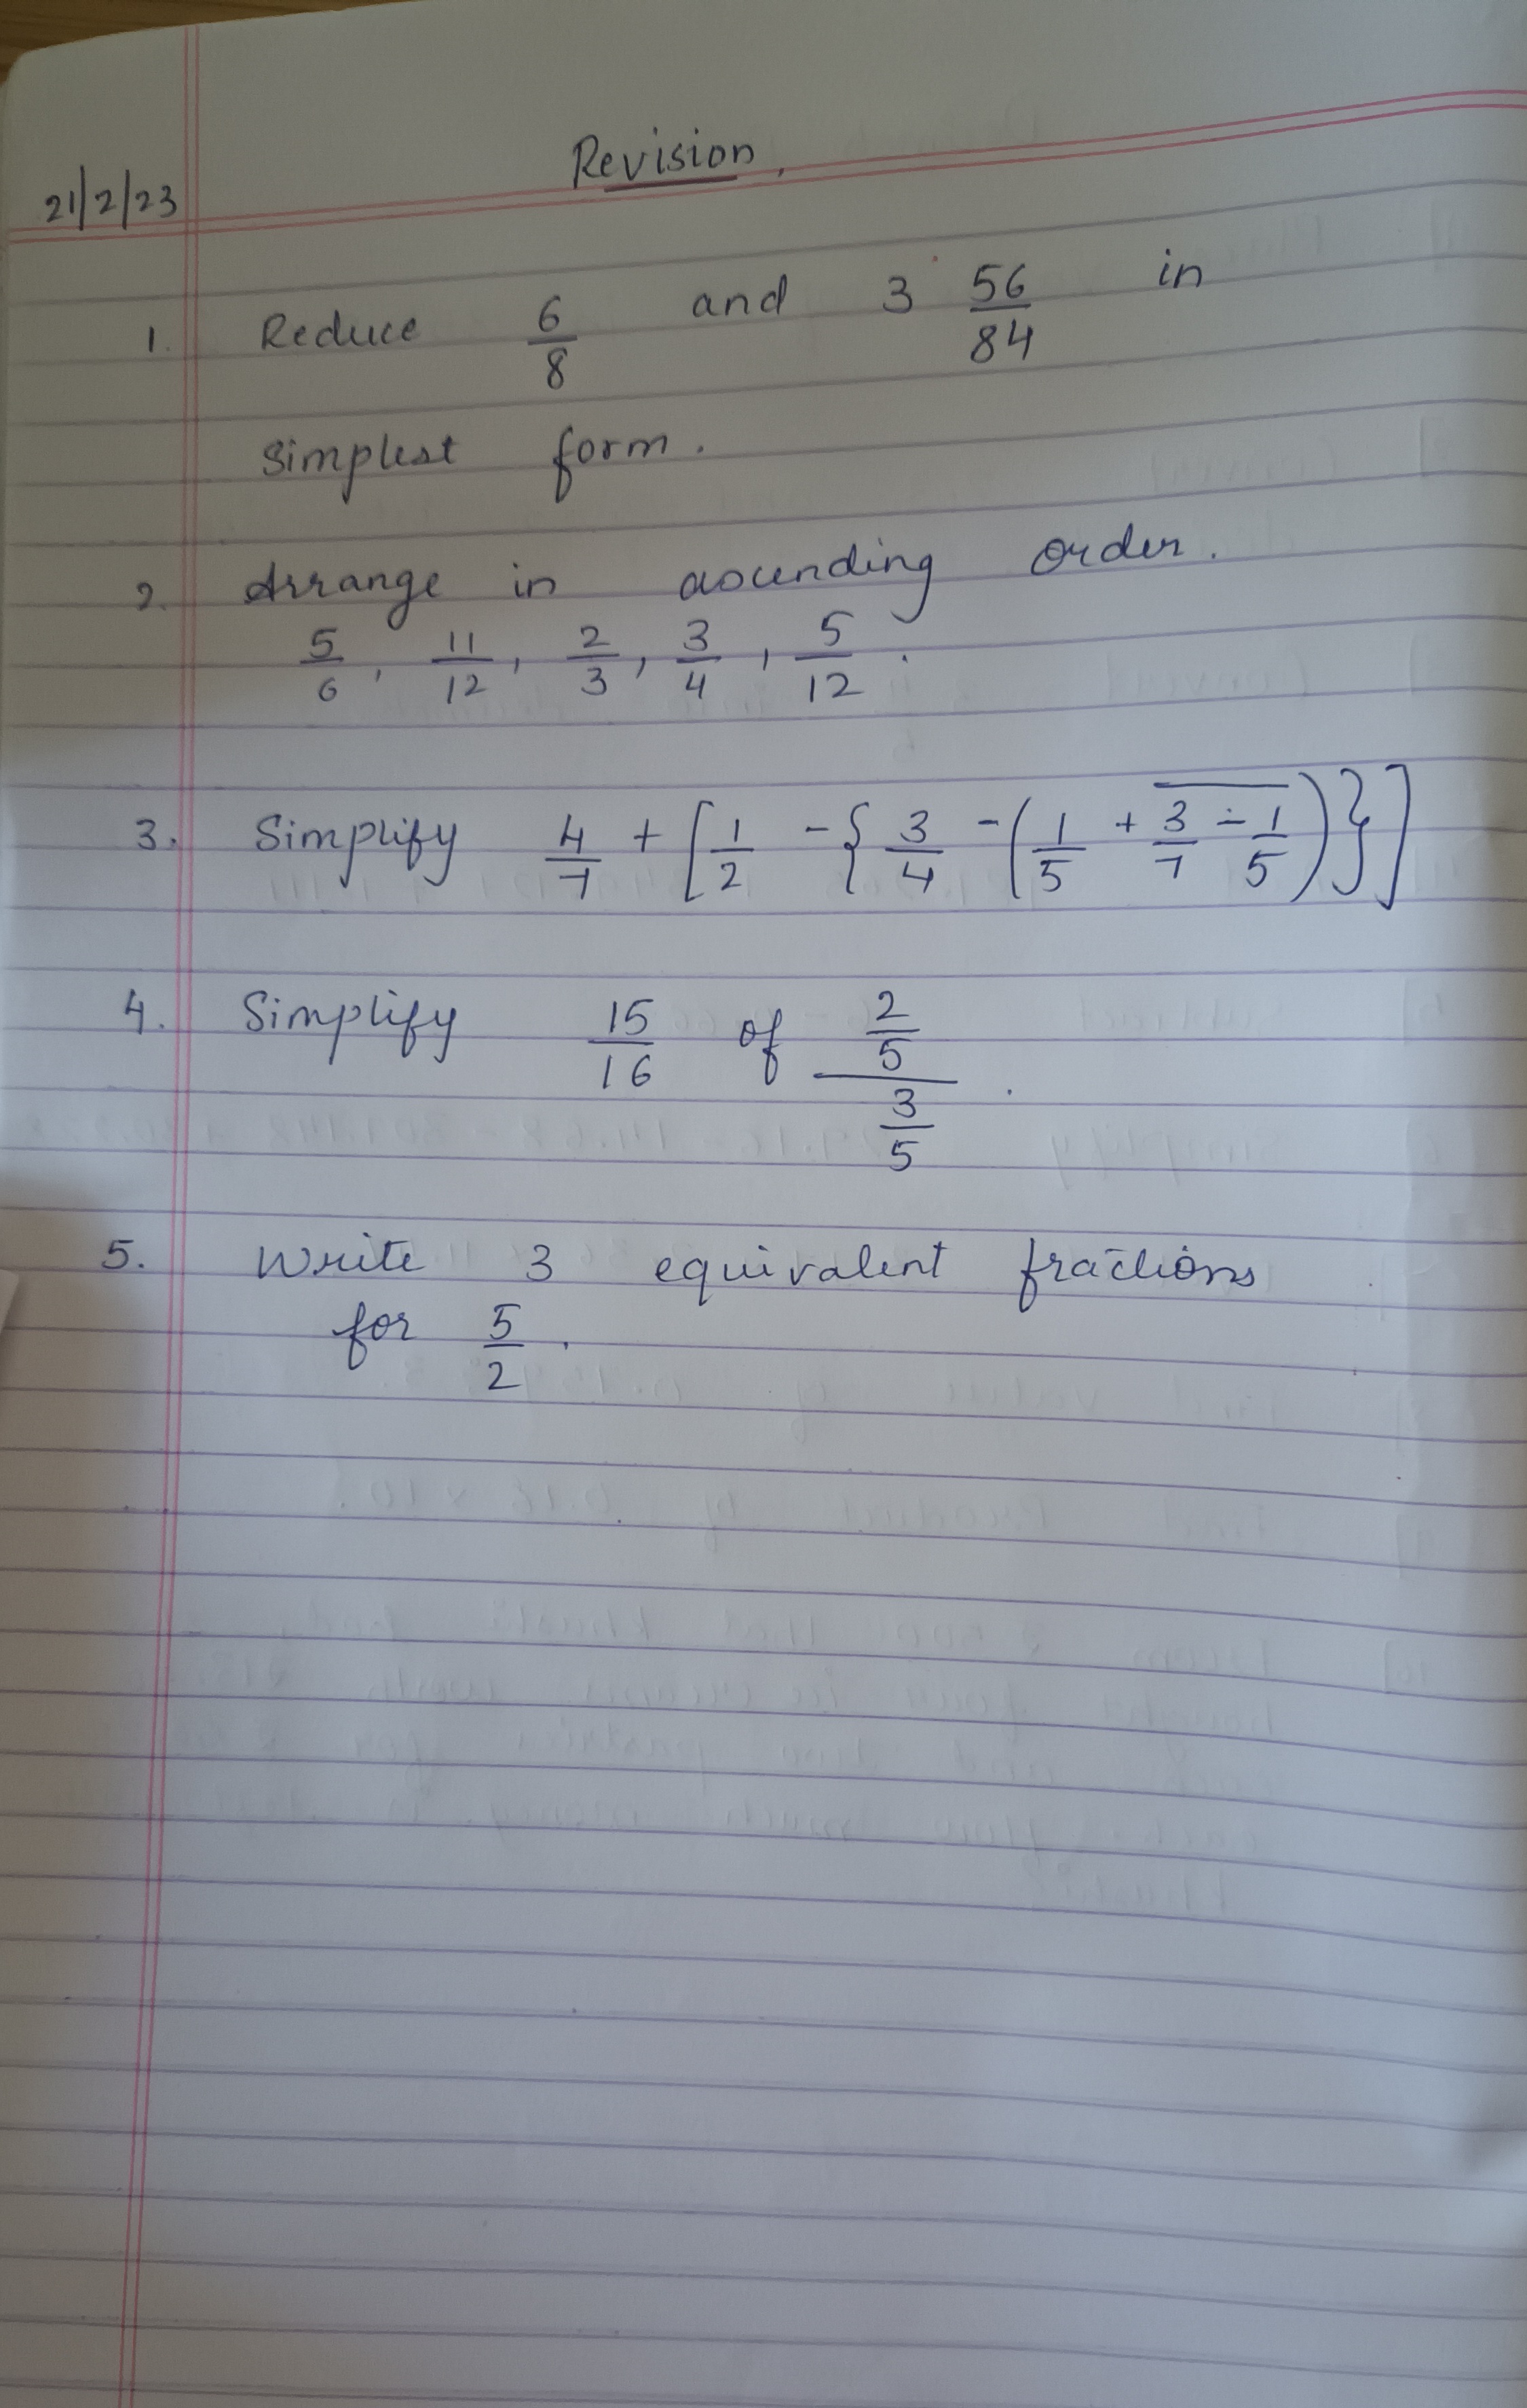 Revision
21/2/23
1. Reduce 6/8 and 3 56/84 in
simplest form.
2. Arrange in ascending order.
5/6, 11/12, 2/3, 3/4, 5/12.
3. Simplify 4/7 + [1/2 - {3/4 - (1/5 + 3/7 - 1/5)}]
4. Simplify 15/16 of 2/5 / 3/5.
5. Write 3 equivalent fractions
for 5/2.